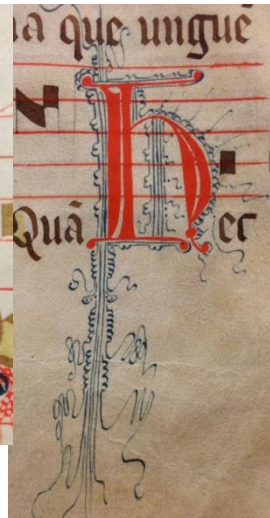 a que ungue
Quā Hec